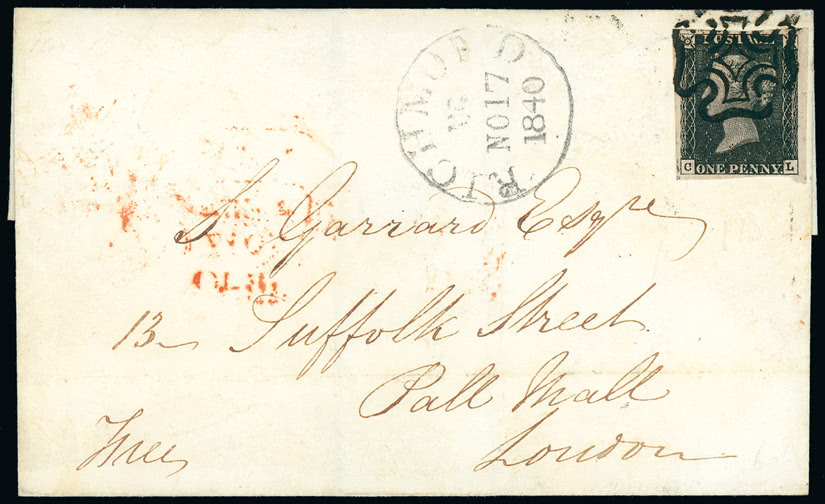 POSTAGE
C L
ONE PENNY.
RICHMOND
NO17
1840
S Garrard Esqre
13 Suffolk Street
Pall Mall
London
Free